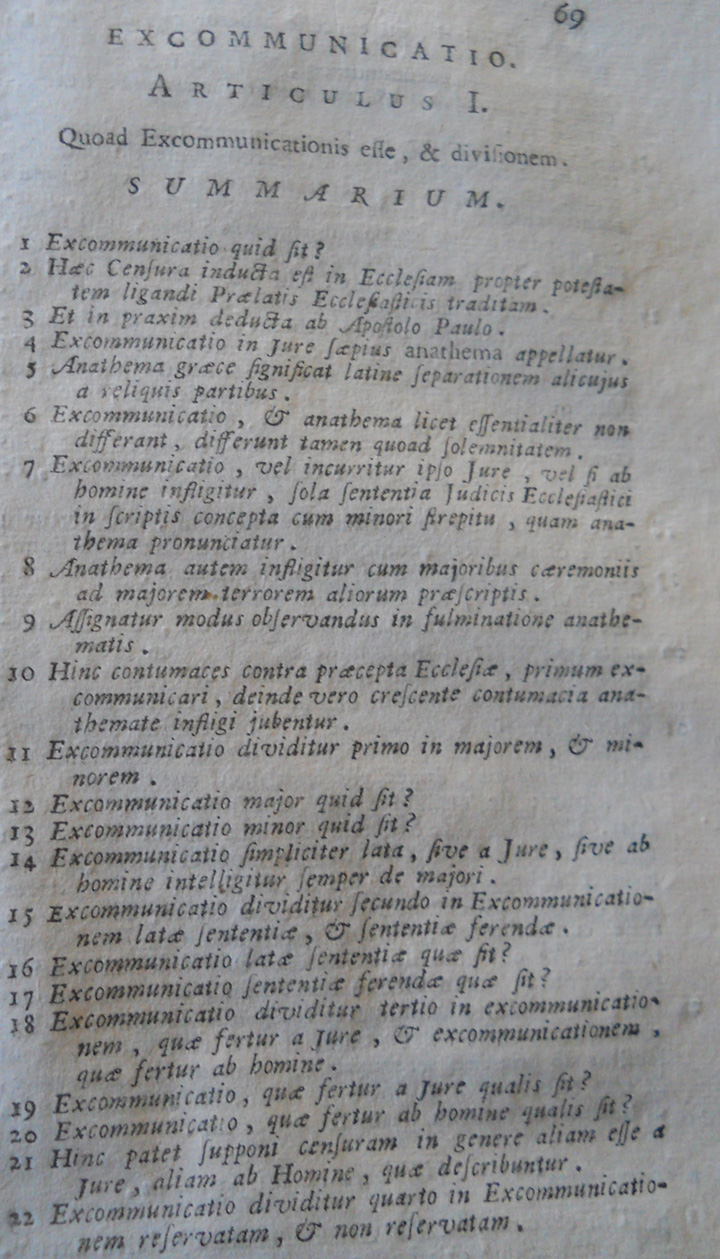 69
EXCOMMUNICATIO.
ARTICULUS I.
Quoad Excommunicationis eſſe, & diviſionem.
SUMMARIUM.
1 Excommunicatio quid ſit?
2 Hæc Cenſura inducta eſt in Eccleſiam propter poteſta-
tem ligandi Prælatis Eccleſiaſticis traditam.
3 Et in praxim deducta ab Apoſtolo Paulo.
4 Excommunicatio in Jure ſæpius anathema appellatur.
5 Anathema græce ſignificat latine ſeparationem alicujus
a reliquis partibus.
6 Excommunicatio, & anathema licet eſſentialiter non
differant, differunt tamen quoad ſolemnitatem.
7 Excommunicatio, vel incurritur ipſo Jure, vel ſi ab
homine infligitur, ſola ſententia Judicis Eccleſiaſtici
in ſcriptis concepta cum minori ſtrepitu, quam ana-
thema pronunciatur.
8 Anathema autem infligitur cum majoribus cæremoniis
ad majorem terrorem aliorum præſcriptis.
9 Aſſignatur modus obſervandus in fulminatione anathe-
matis.
10 Hinc contumaces contra præcepta Eccleſiæ, primum ex-
communicari, deinde vero creſcente contumacia ana-
themate infligi jubentur.
11 Excommunicatio dividitur primo in majorem, & mi-
norem.
12 Excommunicatio major quid ſit?
13 Excommunicatio minor quid ſit?
14 Excommunicatio ſimpliciter lata, ſive a Jure, ſive ab
homine intelligitur ſemper de majori.
15 Excommunicatio dividitur ſecundo in Excommunicatio-
nem latæ ſententiæ, & ſententiæ ferendæ.
16 Excommunicatio latæ ſententiæ quæ ſit?
17 Excommunicatio ſententiæ ferendæ quæ ſit?
18 Excommunicatio dividitur tertio in excommunicatio-
nem, quæ fertur a Jure, & excommunicationem,
quæ fertur ab homine.
19 Excommunicatio, quæ fertur a Jure qualis ſit?
20 Excommunicatio, quæ fertur ab homine qualis ſit?
21 Hinc patet ſupponi cenſuram in genere aliam eſſe a
Jure, aliam ab Homine, quæ deſcribuntur.
22 Excommunicatio dividitur quarto in Excommunicatio-
nem reſervatam, & non reſervatam.